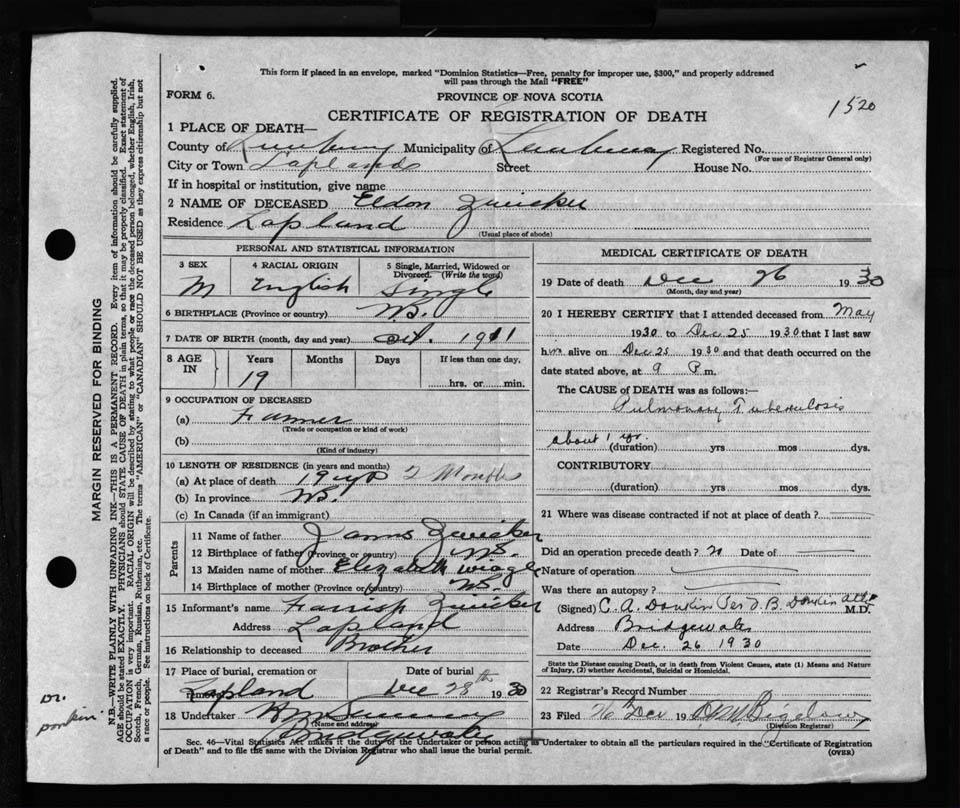 This form if placed in an envelope, marked "Dominion Statistics—Free, penalty for improper use, $300," and properly addressed
will pass through the Mail "FREE"
FORM 6.
PROVINCE OF NOVA SCOTIA
1520
CERTIFICATE OF REGISTRATION OF DEATH
1 PLACE OF DEATH—
County of Lunenburg Municipality of Lunenburg Registered No.
(For use of Registrar General only)
City or Town Lapland Street House No.
If in hospital or institution, give name
2 NAME OF DECEASED Eldon Zwicker
Residence Lapland
(Usual place of abode)
PERSONAL AND STATISTICAL INFORMATION
3 SEX 4 RACIAL ORIGIN 5 Single, Married, Widowed or Divorced. (Write the word)
M English Single
6 BIRTHPLACE (Province or country) N.S.
7 DATE OF BIRTH (month, day and year) Oct. 1911
8 AGE IN Years Months Days If less than one day,
19 hrs. or min.
9 OCCUPATION OF DECEASED
(a) Farmer
(Trade or occupation or kind of work)
(b)
(Kind of industry)
10 LENGTH OF RESIDENCE (in years and months)
(a) At place of death 19 yrs 2 Months
(b) In province N.S.
(c) In Canada (if an immigrant)
Parents
11 Name of father James Zwicker
12 Birthplace of father (Province or country) N.S.
13 Maiden name of mother Elizabeth
14 Birthplace of mother (Province or country) N.S.
15 Informant's name Zwicker
Address Lapland
16 Relationship to deceased Brother
17 Place of burial, cremation or Date of burial
Lapland Dec 28th 1930
18 Undertaker
(Name and address)
Bridgewater
MEDICAL CERTIFICATE OF DEATH
19 Date of death Dec 26 1930
(Month, day and year)
20 I HEREBY CERTIFY that I attended deceased from May
1930 to Dec 25 1930 that I last saw
him alive on Dec 25 1930 and that death occurred on
date stated above, at 9 P.m.
The CAUSE of DEATH was as follows:
Pulmonary Tuberculosis
about 1 yr.
(duration) yrs mos dys.
CONTRIBUTORY
(duration) yrs mos dys.
21 Where was disease contracted if not at place of death?
Did an operation precede death? n Date of
Nature of operation
Was there an autopsy?
(Signed) C. A. Donkin Per J. B. Donkin M.D.
Address Bridgewater
Date Dec. 26 1930
State the Disease causing Death, or in death from Violent Causes, state (1) Means and Nature
of Injury, (2) whether Accidental, Suicidal or Homicidal.
22 Registrar's Record Number
23 Filed 26 Dec 19
(Division Registrar)
Sec. 46—Vital Statistics Act makes it the duty of the Undertaker or person acting as Undertaker to obtain all the particulars required in the "Certificate of Registration
of Death" and to file the same with the Division Registrar who shall issue the burial permit.
(OVER)
MARGIN RESERVED FOR BINDING
N.B.—WRITE PLAINLY WITH UNFADING INK—THIS IS A PERMANENT RECORD. Every item of information should be carefully supplied.
AGE should be stated EXACTLY. PHYSICIANS should STATE CAUSE OF DEATH in plain terms, so that it may be properly classified. Exact statement of
OCCUPATION is very important. RACIAL ORIGIN will be described by stating to what people or race the deceased person belonged, whether English, Irish,
Scotch, French, German, Russian, Ruthenian, etc. The terms "AMERICAN" or "CANADIAN" SHOULD NOT BE USED as they express citizenship but not
a race or people. See instructions on back of Certificate.
Dr.
Donkin